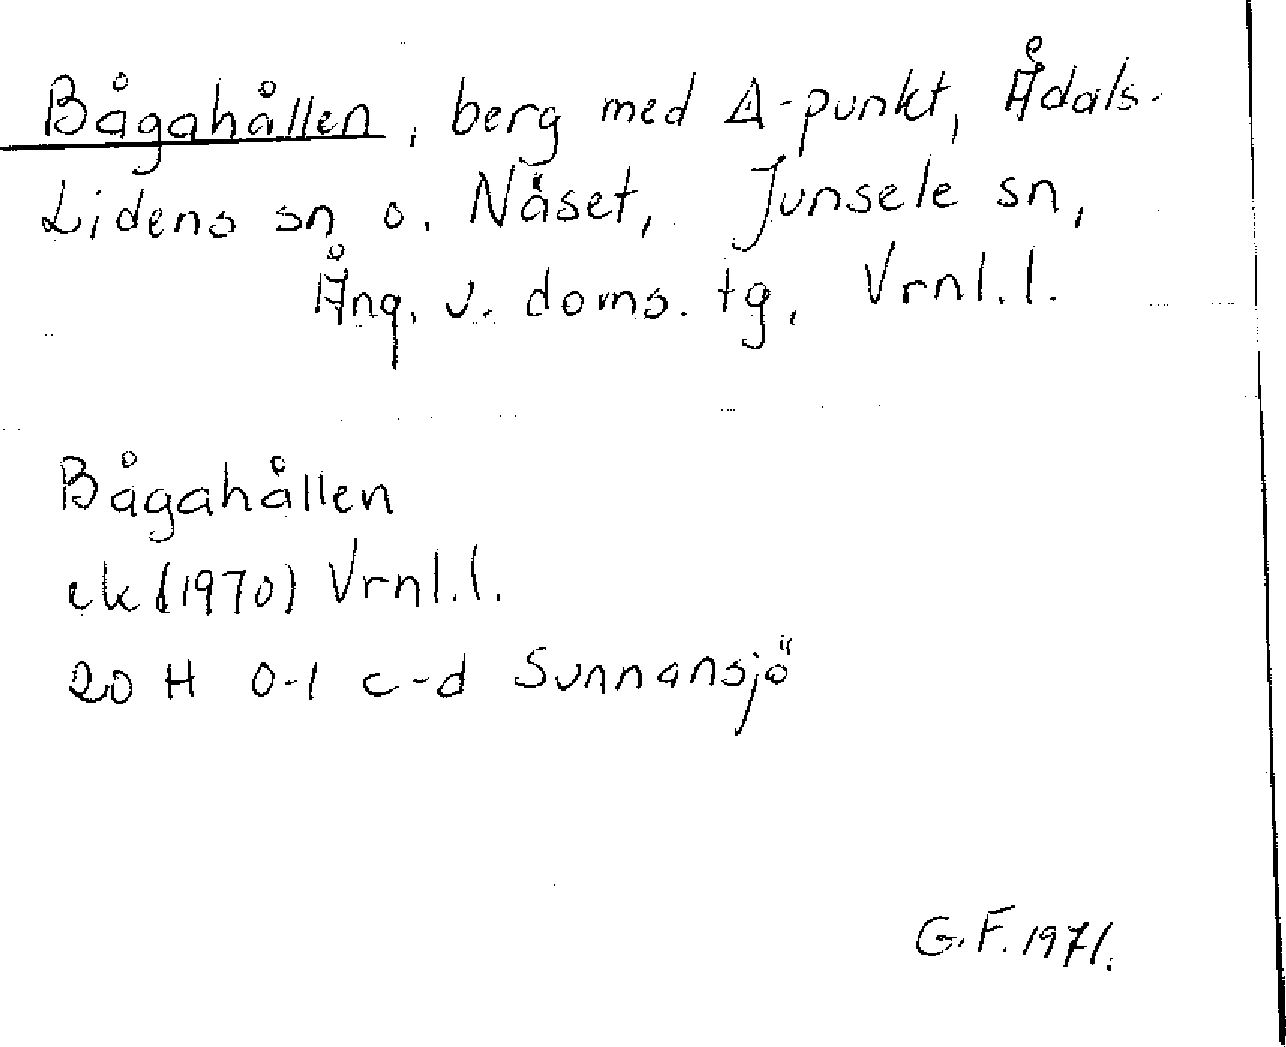 Bågahållen, berg med Δ-punkt, Ådals-
Lidens sn o. Näset, Junsele sn,
Ång. v. doms. tg, Vrnl.l.
Bågahållen
ek (1970) Vrnl.l.
20 H 0-1 c-d Sunnansjö
G.F. 1971.